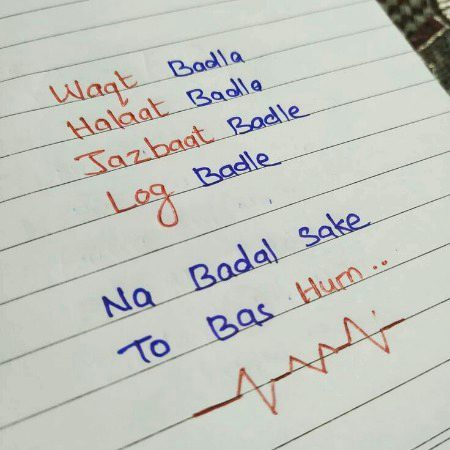 Waqt Badla
Halaat Badla
Jazbaat Badle
Log Badle
Na Badal sake
To Bas Hum..